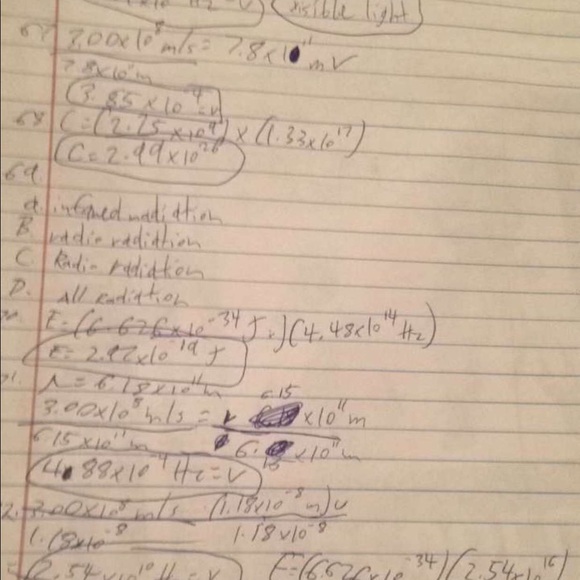 visible light
67 3.00x10^8 m/s = 7.8x10^11 m V
7.8x10^11 m
3.85x10^-4 = v
68 C = (2.25x10^9) x (1.33x10^17)
C = 2.99x10^26
69
a. infared radiation
B. radio radiation
C. Radio radiation
D. All radiation
E = (6.626x10^-34 J·)(4.48x10^14 Hz)
E = 2.97x10^-19 J
λ = 6.15x10^11 m
6.15
3.00x10^8 m/s = v x10^11 m
6.15x10^11 m 6. 15 x10^11 m
4.88x10^-4 Hz = v
2. 3.00x10^8 m/s (1.18x10^-8 m) v
1.18x10^-8 1.18x10^-8
2.54x10^16 Hz = v E = (6.626x10^-34)(2.54x10^16)